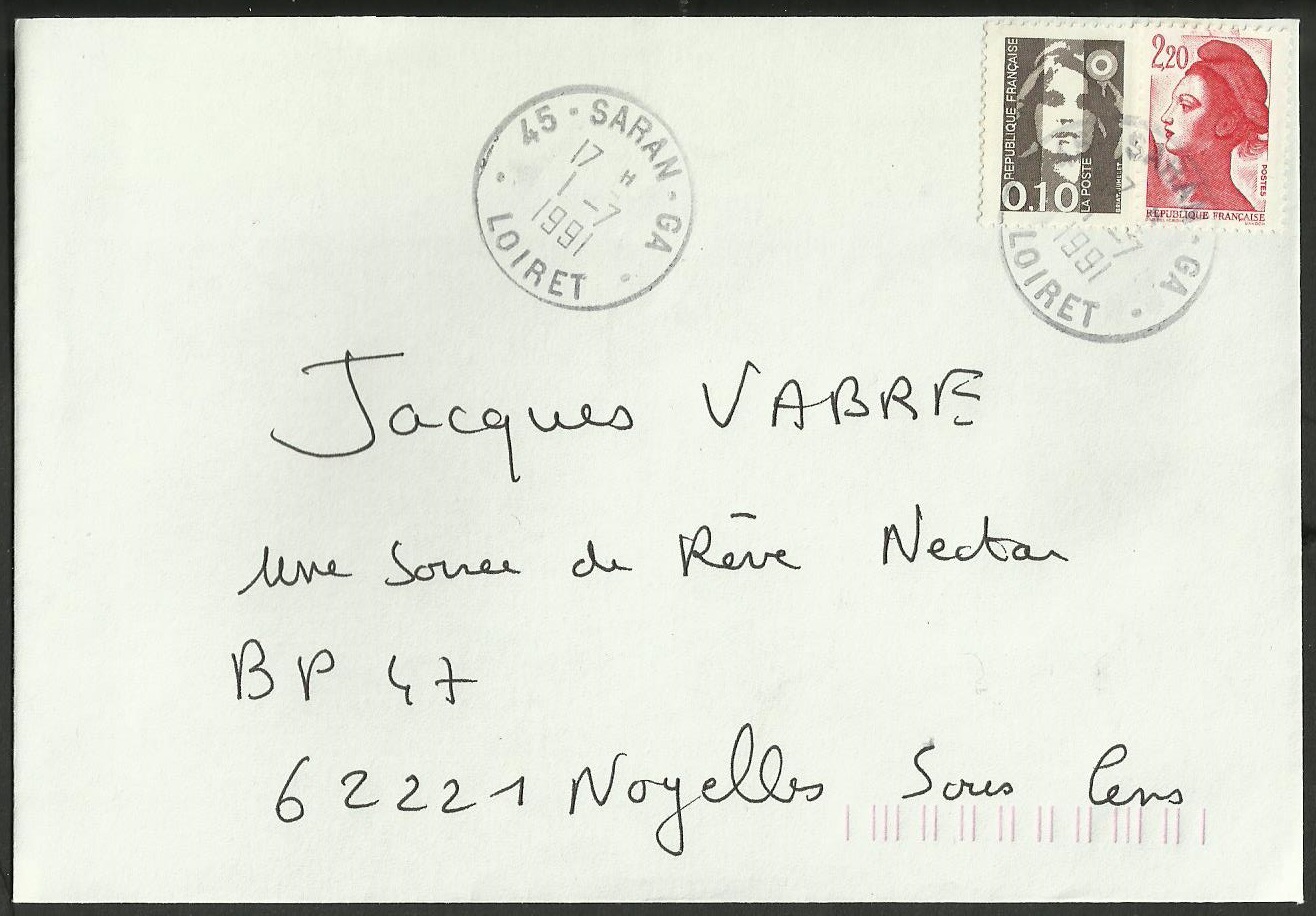 45 - SARAN - GA
17 H
1 - 7
1991
LOIRET
RÉPUBLIQUE FRANÇAISE
0.10
LA POSTE
2,20
POSTES
RÉPUBLIQUE FRANÇAISE
1991
GA
LOIRET
Jacques VABRE
une Soirée de Rêve Nectar
BP 47
62221 Noyelles Sous Lens